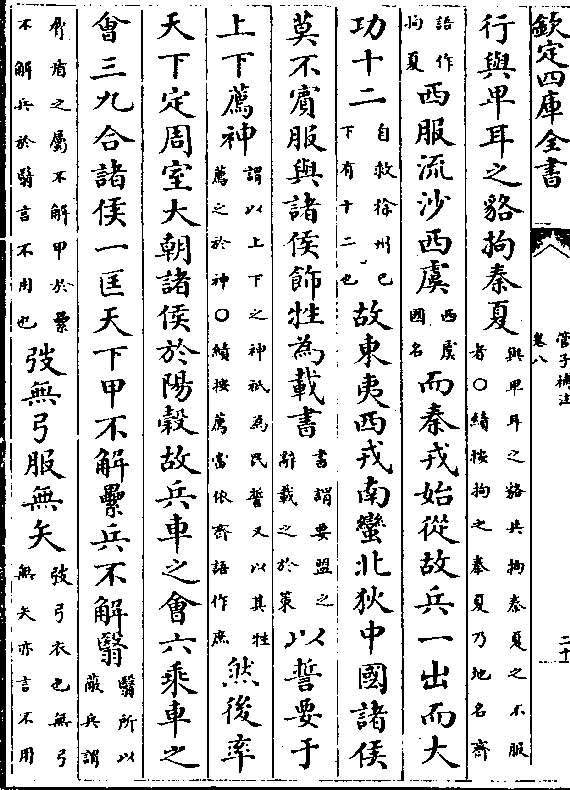 欽定四庫全書
管子補注
卷八
二十
行與卑耳之貉拘秦夏
與卑耳之貉共拘秦夏之不服
者○績按拘之秦夏乃地名齊
語作
拘夏
西服流沙西虞
西虞
國名
而秦戎始從故兵一出而大
功十二
自救徐州已
下有十二也
故東夷西戎南蠻北狄中國諸侯
莫不賓服與諸侯飾牲為載書
書謂要盟之
辭載之於策
以誓要于
上下薦神
謂以上下之神祇為民誓又以其牲
薦之於神○績按薦當依齊語作庶
然後率
天下定周室大朝諸侯於陽穀故兵車之會六乘車之
會三九合諸侯一匡天下甲不解纍兵不解翳
翳所以
蔽兵謂
脅盾之屬不解甲於纍
不解兵於翳言不用也
弢無弓服無矢
弢弓衣也無弓
無矢亦言不用